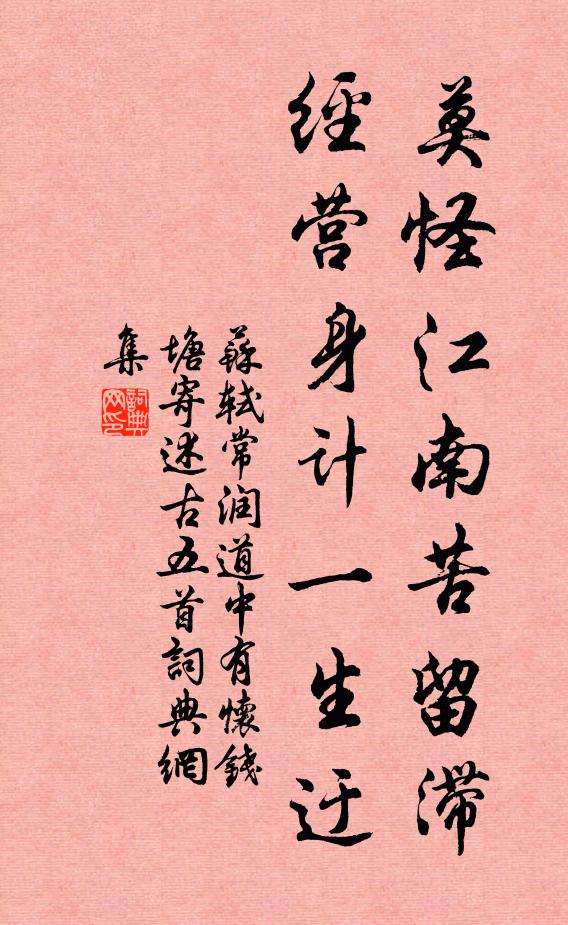 莫怪江南苦留滞
经营身计一生迂
蘇轼常润道中有懷錢
塘寄述古五首詞典網
集
詞典
网印